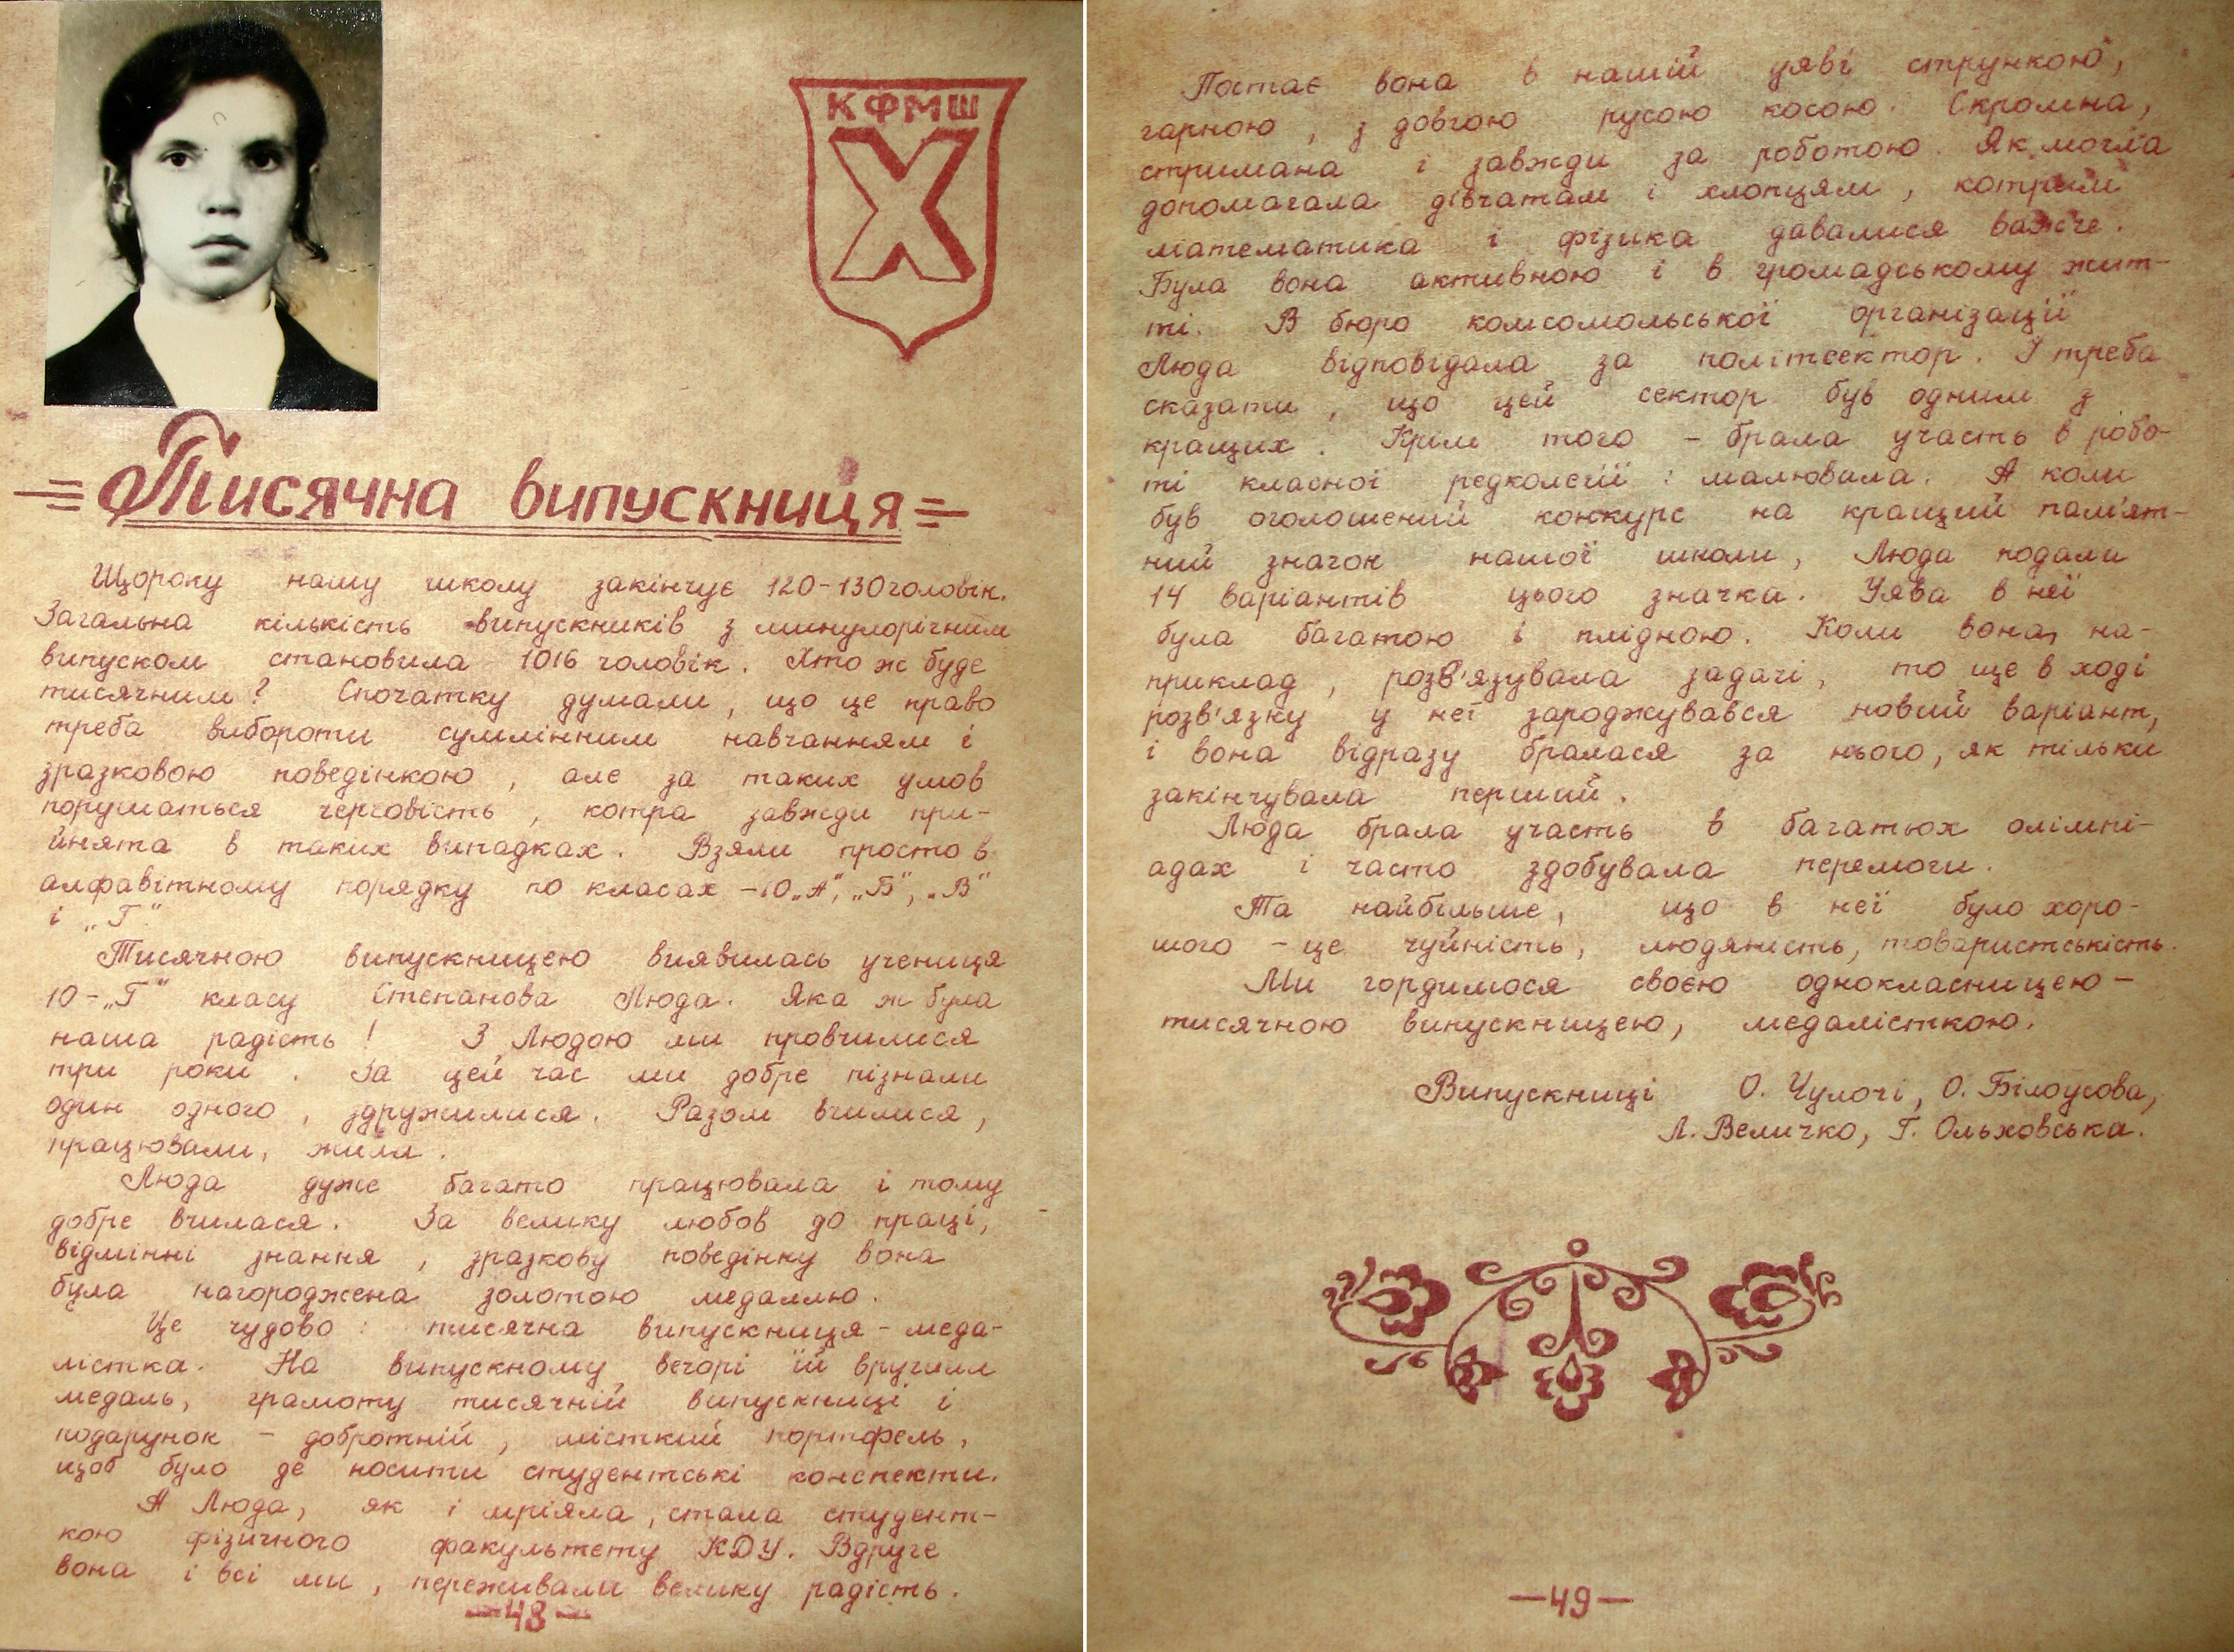 КФМШ
X
Тисячна випускниця
Щороку нашу школу закінчує 120-130 чоловік.
Загальна кількість випускників з минулорічним
випуском становила 1016 чоловік. Хто ж буде
тисячним? Спочатку думали, що це право
треба вибороти сумлінним навчанням і
зразковою поведінкою, але за таких умов
порушаться черговість, котра завжди при-
йнята в таких випадках. Взяли просто в
алфавітному порядку по класах -10 „А", „Б", „В"
і „Г".
Тисячною випускницею виявилась учениця
10-„Г" класу Степанова Люда. Яка ж була
наша радість! З Людою ми провчилися
три роки. За цей час ми добре пізнали
один одного, здружилися. Разом вчилися,
працювали, жили.
Люда дуже багато працювала і тому
добре вчилася. За велику любов до праці,
відмінні знання, зразкову поведінку вона
була нагороджена золотою медаллю.
Це чудово: тисячна випускниця - меда-
лістка. На випускному вечорі їй вручили
медаль, грамоту тисячній випускниці і
подарунок - добротній, місткий портфель,
щоб було де носити студентські конспекти.
А Люда, як і мріяла, стала студент-
кою фізичного факультету КДУ. Вдруге
вона і всі ми, переживали велику радість.
-48-
Постає вона в нашій уяві стрункою,
гарною, з довгою русою косою. Скромна,
стримана і завжди за роботою. Як могла
допомагала дівчатам і хлопцям, котрим
математика і фізика давалися важче.
Була вона активною і в громадському жит-
ті. В бюро комсомольської організації
Люда відповідала за політсектор. І треба
сказати, що цей сектор був одним з
кращих. Крім того - брала участь в робо-
ті класної редколегії: малювала. А коли
був оголошений конкурс на кращий пам'ят-
ний значок нашої школи, Люда подали
14 варіантів цього значка. Уява в неї
була багатою і плідною. Коли вона, на-
приклад, розв'язувала задачі, то ще в ході
розв'язку у неї зароджувався новий варіант,
і вона відразу бралася за нього, як тільки
закінчувала перший.
Люда брала участь в багатьох олімпі-
адах і часто здобувала перемоги.
Та найбільше, що в неї було хоро-
шого - це чуйність, людяність, товариськість.
Ми гордимося своєю однокласницею-
тисячною випускницею, медалісткою.
Випускниці О. Чулочі, О. Білоусова,
Л. Величко, Г. Ольховська.
-49-